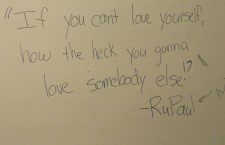 "If you cant love yourself,
how the heck you gunna
love somebody else!?"
-RuPaul